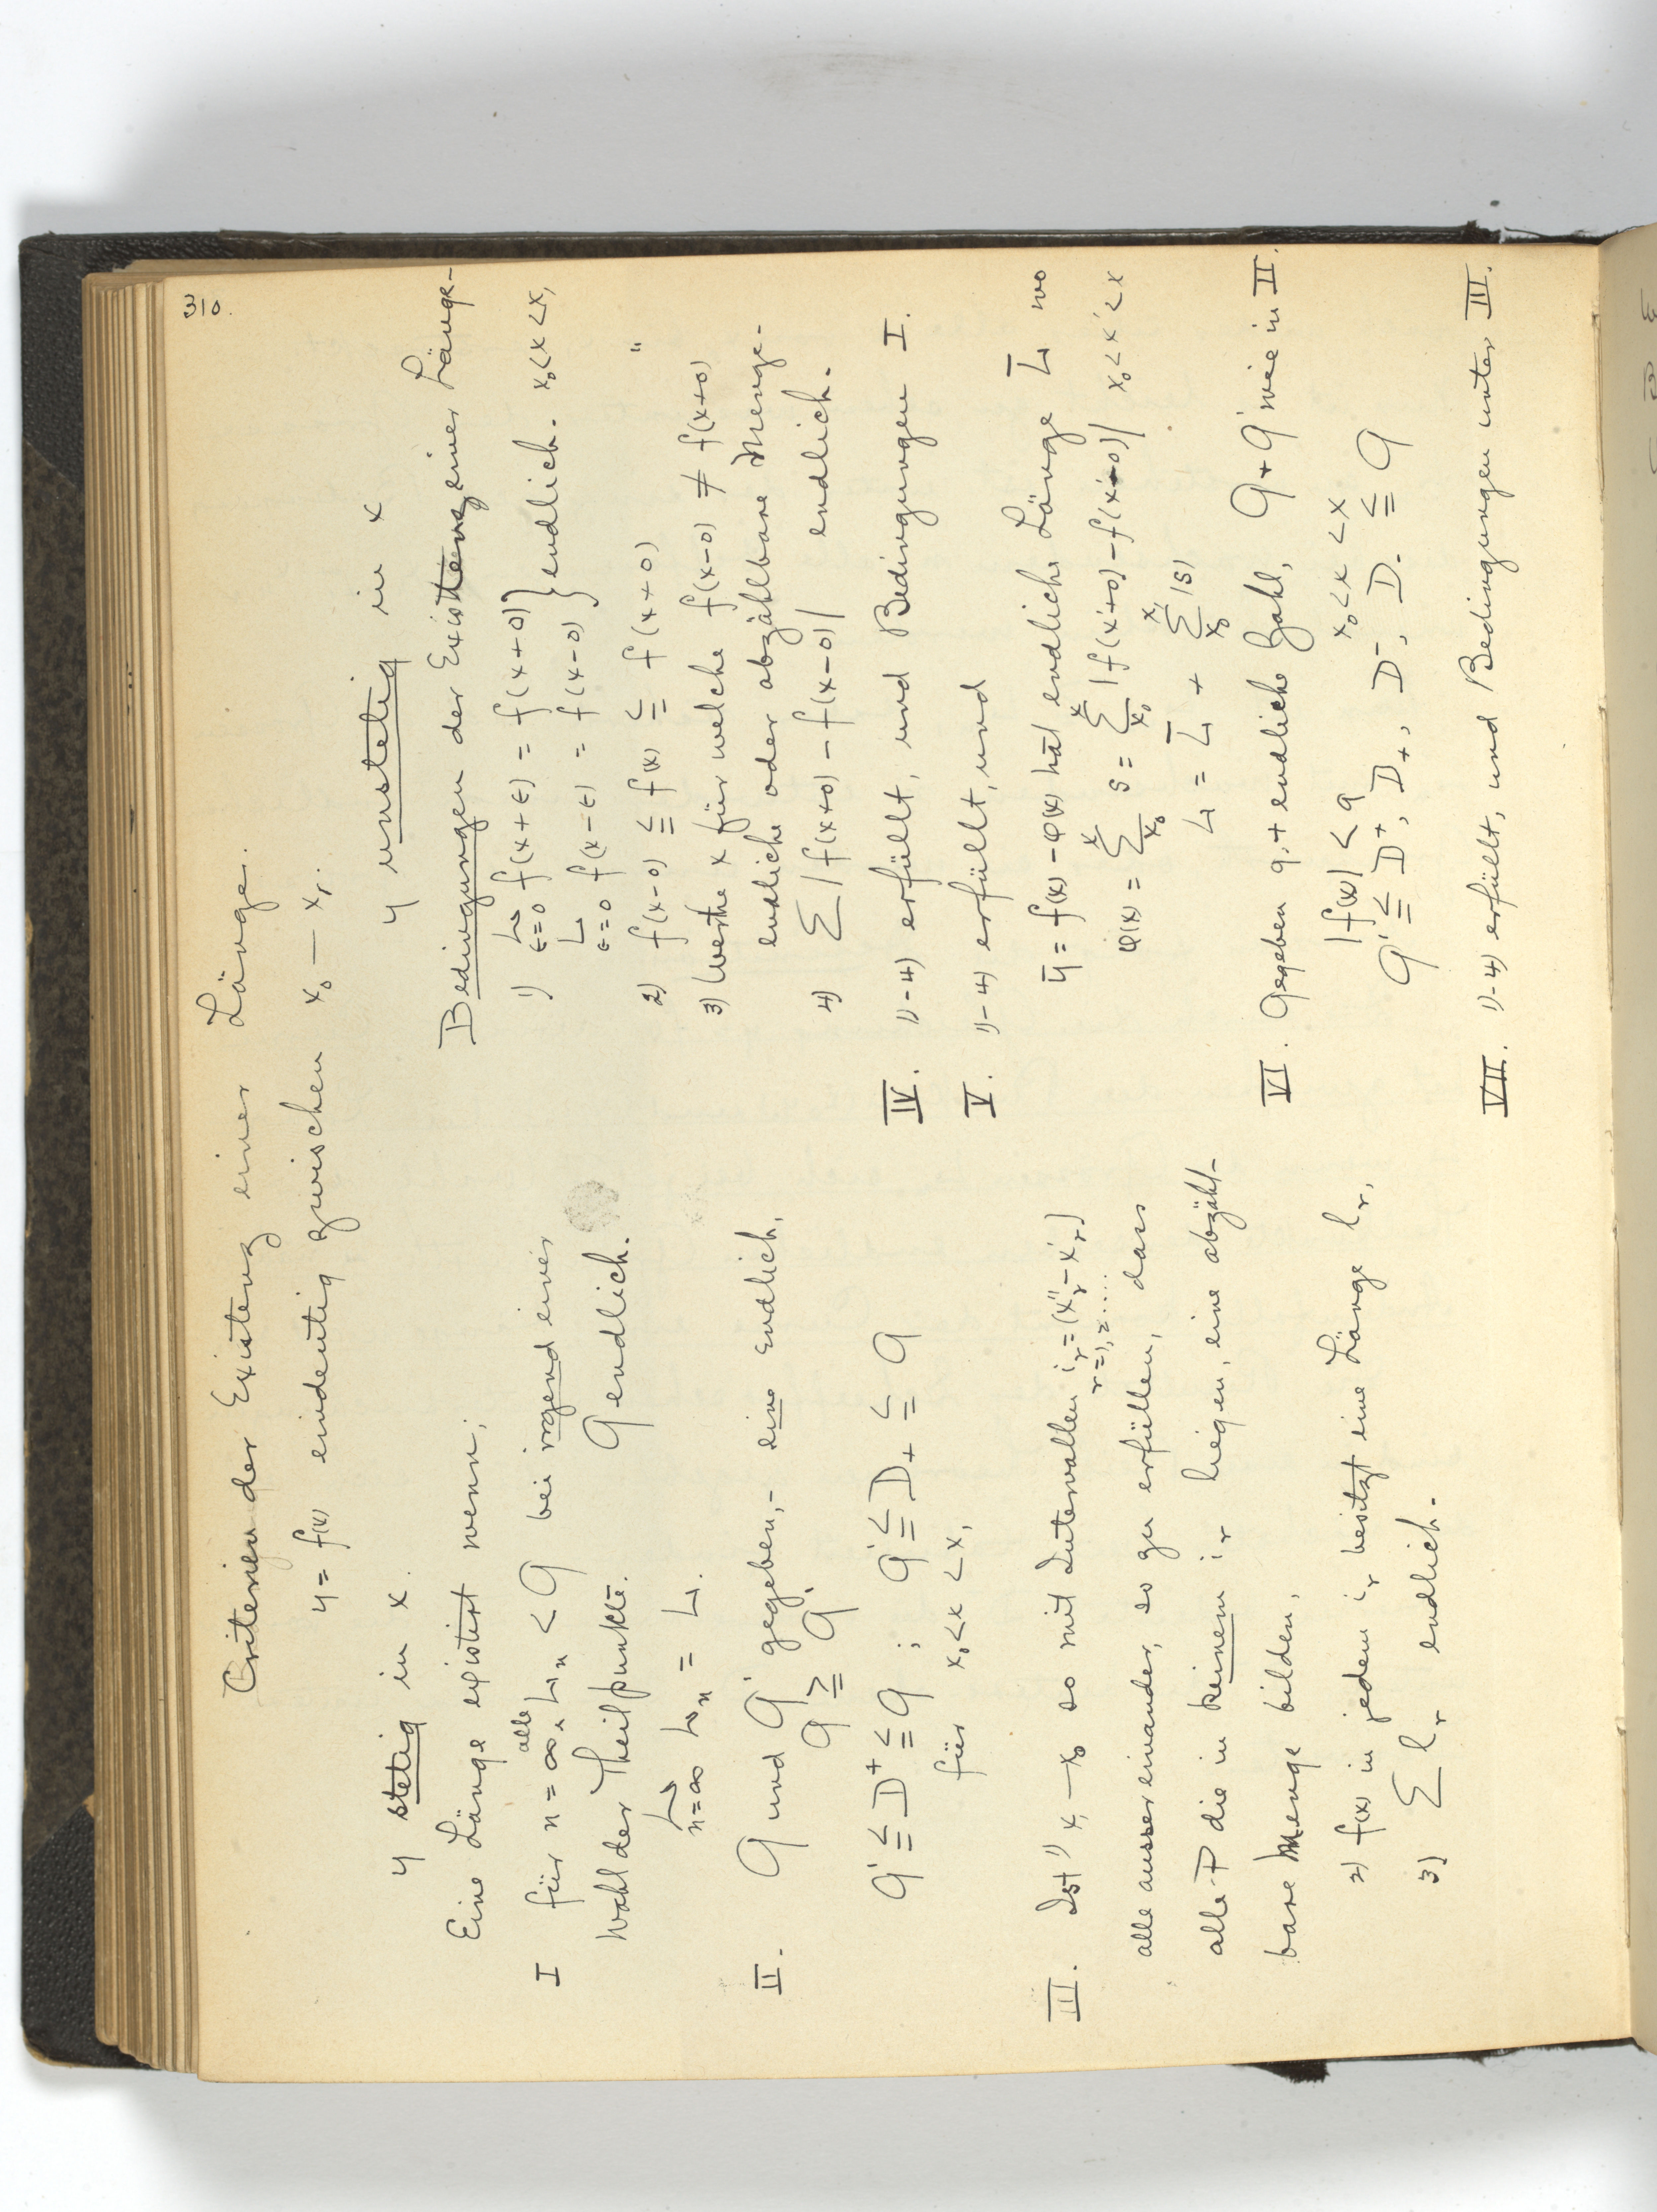 310.
Criterien der Existenz einer Länge.
y = f(x) eindeutig zwischen x₀ — x₁.
y stetig in x.
Eine Länge existirt wenn;
I für n = ∞, alle Lₙ < G bei irgend einer
Wahl der Theilpunkte. G endlich.
L n=∞ Lₙ = L.
II. G und G' gegeben,- eine endlich,
G ≧ G'.
G' ≦ D⁺ ≦ G ; G' ≦ D₊ ≦ G
für x₀ < x < x₁
III. Ist 1) x₁ — x₀ so mit Intervallen iᵣ = (x''ᵣ — x'ᵣ)
r = 1, 2, .....
alle aussereinander, so zu erfüllen, dass
alle P die in keinem iᵣ liegen, eine abzähl-
bare Menge bilden,
2) f(x) in jedem iᵣ besitzt eine Länge lᵣ,
3) Σ lᵣ endlich.
y unstetig in x
Bedingungen der Existenz einer Länge-
1) L ε=0 f(x + ε) = f(x + 0) } endlich. x₀ < x < x₁
L ε=0 f(x − ε) = f(x − 0)
2) f(x−0) ≦ f(x) ≦ f(x + 0) "
3) Werthe x für welche f(x−0) ≠ f(x+0)
endliche oder abzählbare Menge-
4) Σ | f(x+0) − f(x−0) | endlich.
IV. 1)-4) erfüllt, und Bedingungen I.
V. 1)-4) erfüllt, und
ȳ = f(x) − φ(x) hat endliche Länge L̄ wo
φ(x) = Σ s = Σ | f(x'+0) − f(x'−0) | x₀ < x' < x
L = L̄ + Σ |s|
VI. Gegeben g, + endliche Zahl, G + G' wie in II.
|f(x)| < g x₀ < x < x
G' ≦ D⁺, D₊, D⁻, D₋ ≦ G
VII. 1)-4) erfüllt, und Bedingungen unter III.